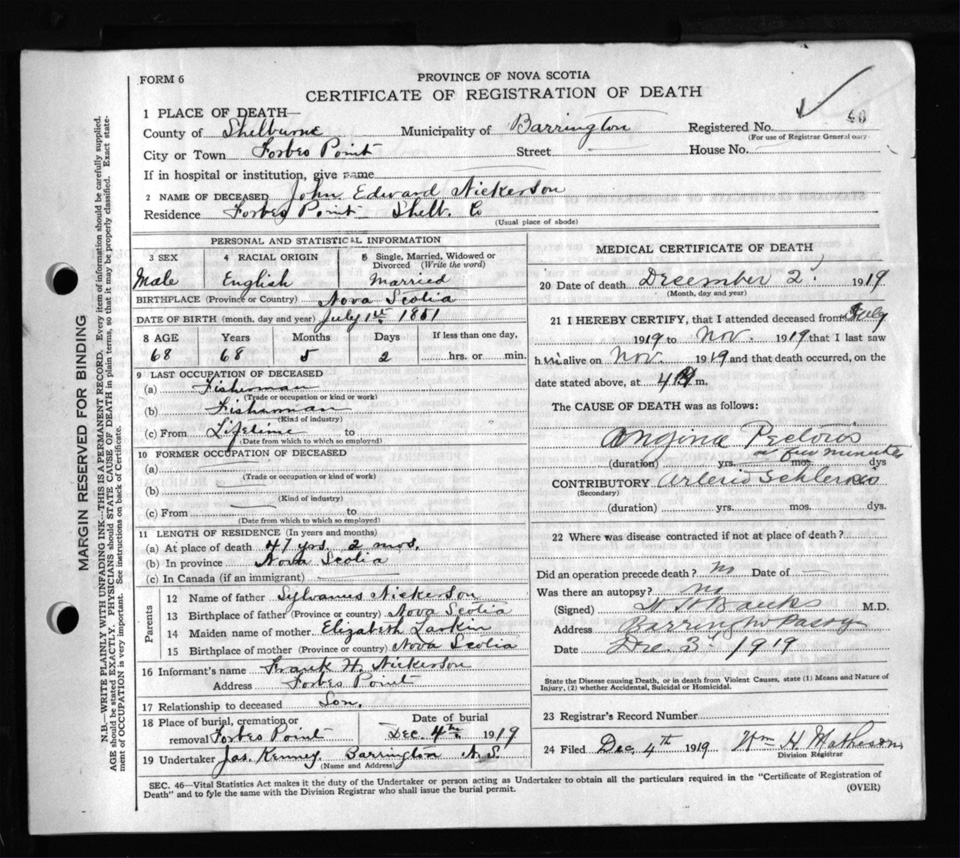 FORM 6
PROVINCE OF NOVA SCOTIA
CERTIFICATE OF REGISTRATION OF DEATH
1 PLACE OF DEATH—
County of Shelburne Municipality of Barrington Registered No. 40
(For use of Registrar General only)
City or Town Forbes Point Street House No.
If in hospital or institution, give name
2 NAME OF DECEASED John Edward Nickerson
Residence Forbes Point Shelb. Co
(Usual place of abode)
PERSONAL AND STATISTICAL INFORMATION
3 SEX 4 RACIAL ORIGIN 5 Single, Married, Widowed or Divorced (Write the word)
Male English Married
BIRTHPLACE (Province or Country) Nova Scotia
DATE OF BIRTH (month, day and year) July 1st 1851
8 AGE Years Months Days If less than one day,
68 68 5 2 hrs. or min.
9 LAST OCCUPATION OF DECEASED
(a) Fisherman
(Trade or occupation or kind or work)
(b) Fisherman
(Kind of industry)
(c) From Lifetime to
(Date from which to which so employed)
10 FORMER OCCUPATION OF DECEASED
(a)
(Trade or occupation or kind of work)
(b)
(Kind of industry)
(c) From to
(Date from which to which so employed)
11 LENGTH OF RESIDENCE (In years and months)
(a) At place of death 47 yrs. 2 mos.
(b) In province Nova Scotia
(c) In Canada (if an immigrant)
Parents
12 Name of father Sylvanus Nickerson
13 Birthplace of father (Province or country) Nova Scotia
14 Maiden name of mother Elizabeth Larkin
15 Birthplace of mother (Province or country) Nova Scotia
16 Informant's name Frank H. Nickerson
Address Forbes Point
17 Relationship to deceased Son.
18 Place of burial, cremation or removal Forbes Point Date of burial Dec. 4th 1919
19 Undertaker Jas. Kenney. Barrington N.S.
(Name and Address)
MEDICAL CERTIFICATE OF DEATH
20 Date of death December 2 1919
(Month, day and year)
21 I HEREBY CERTIFY, that I attended deceased from July
1919 to Nov. 1919 that I last saw
him alive on Nov. 1919 and that death occurred, on the
date stated above, at 4 P m.
The CAUSE OF DEATH was as follows:
Angina Pectoris
a few minutes
(duration) yrs. mos. dys
CONTRIBUTORY Arterio Schlerosis
(Secondary)
(duration) yrs. mos. dys.
22 Where was disease contracted if not at place of death?
Did an operation precede death? no Date of
Was there an autopsy? no
(Signed) Banks M.D.
Address Barrington Passage
Date Dec. 3rd 1919
State the Disease causing Death, or in death from Violent Causes, state (1) Means and Nature of
Injury, (2) whether Accidental, Suicidal or Homicidal.
23 Registrar's Record Number
24 Filed Dec. 4th 1919 Wm H. Matheson
Division Registrar
SEC. 46—Vital Statistics Act makes it the duty of the Undertaker or person acting as Undertaker to obtain all the particulars required in the "Certificate of Registration of
Death" and to fyle the same with the Division Registrar who shall issue the burial permit.
(OVER)
MARGIN RESERVED FOR BINDING
N.B.—WRITE PLAINLY WITH UNFADING INK—THIS IS A PERMANENT RECORD. Every item of information should be carefully supplied.
AGE should be stated EXACTLY. PHYSICIANS should STATE CAUSE OF DEATH in plain terms, so that it may be properly classified. Exact statement of OCCUPATION is very important. See instructions on back of Certificate.